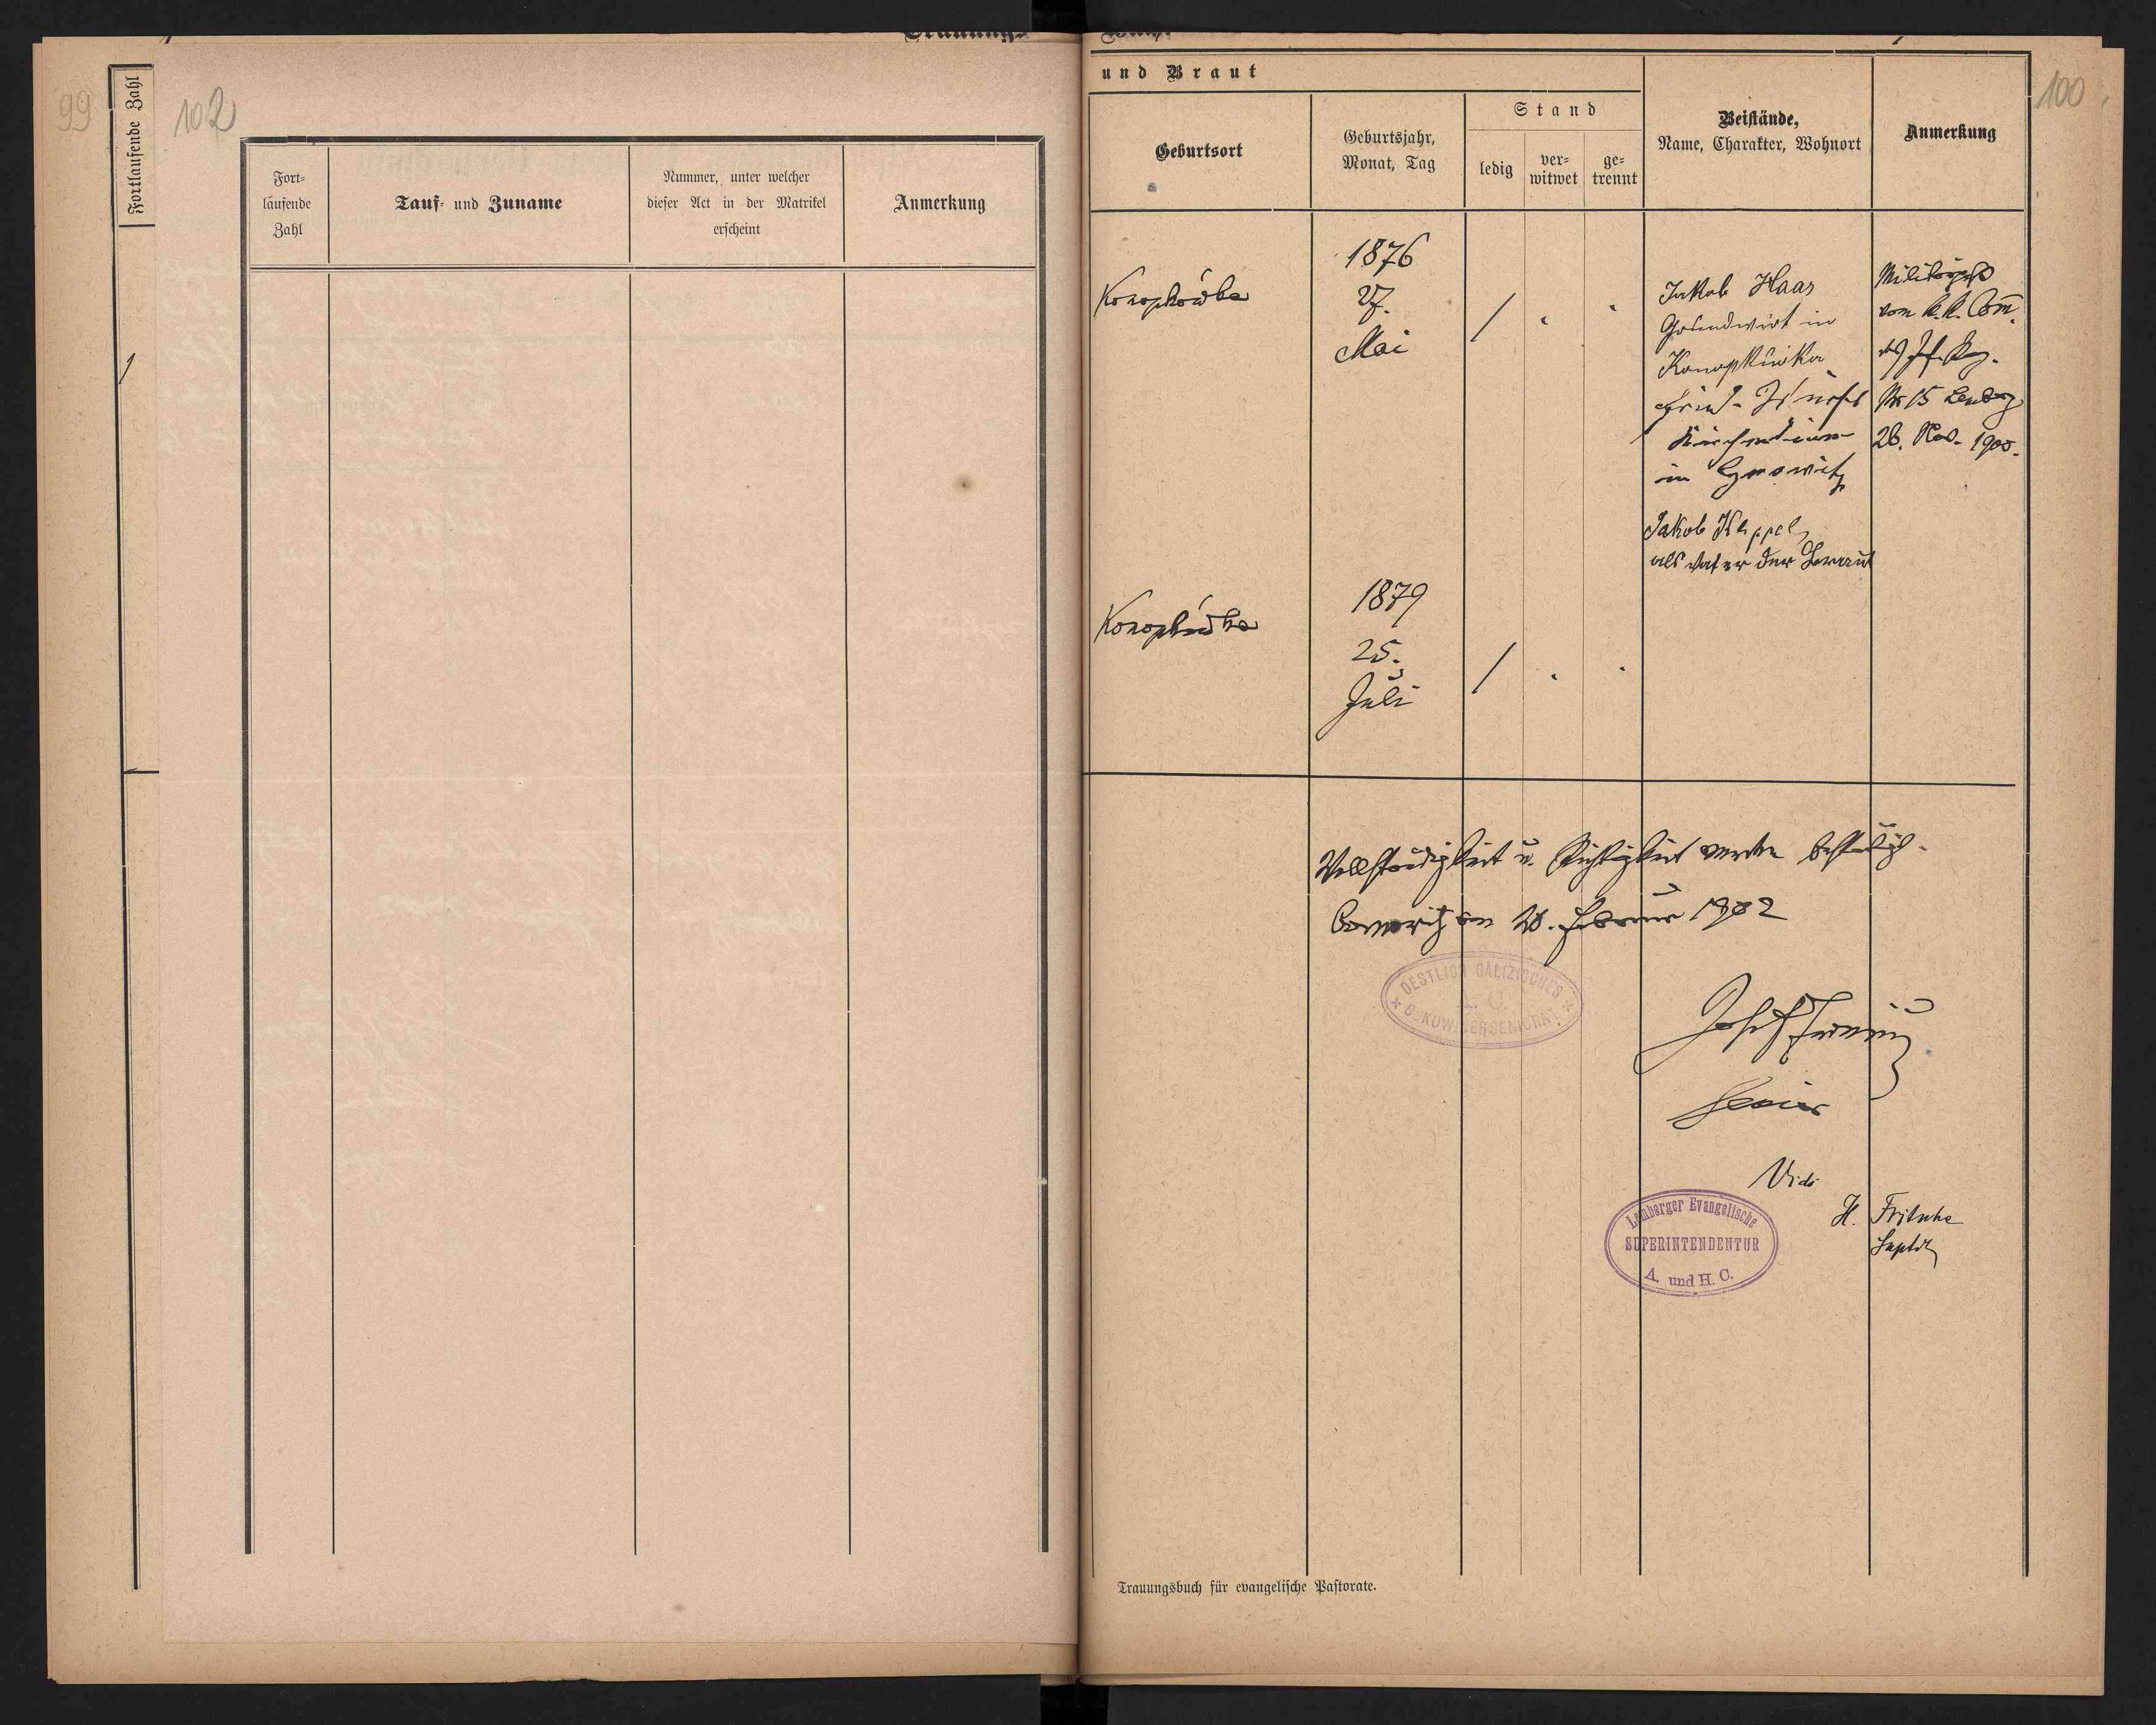 99
102
Fortlaufende Zahl
1
Fort-
laufende
Zahl
Tauf- und Zuname
Nummer, unter welcher
dieser Act in der Matrikel
erscheint
Anmerkung
und Braut
100
Geburtsort
Geburtsjahr,
Monat, Tag
Stand
ledig
ver-
witwet
ge-
trennt
Beistände,
Name, Charakter, Wohnort
Anmerkung
Konopkówka
1876
27.
Mai
/
Jakob Haas
Grundwirt in
Konopkówka
in
Jakob Keppel,
als Vater der Braut
vom k. k. Com.
Nr 15 Lemberg
26. Nov. 1900.
Konopkówka
1879
25.
Juli
/
Vollständigkeit u. Richtigkeit werden bestätigt.
20. Februar 1902
OESTLICH GALIZISCHES
A. C.
B_KOWINERSENIORAT
Josef
Senior
Vidi
H. Fritsche
Suptdt
Lemberger Evangelische
SUPERINTENDENTUR
A. und H. C.
Trauungsbuch für evangelische Pastorate.